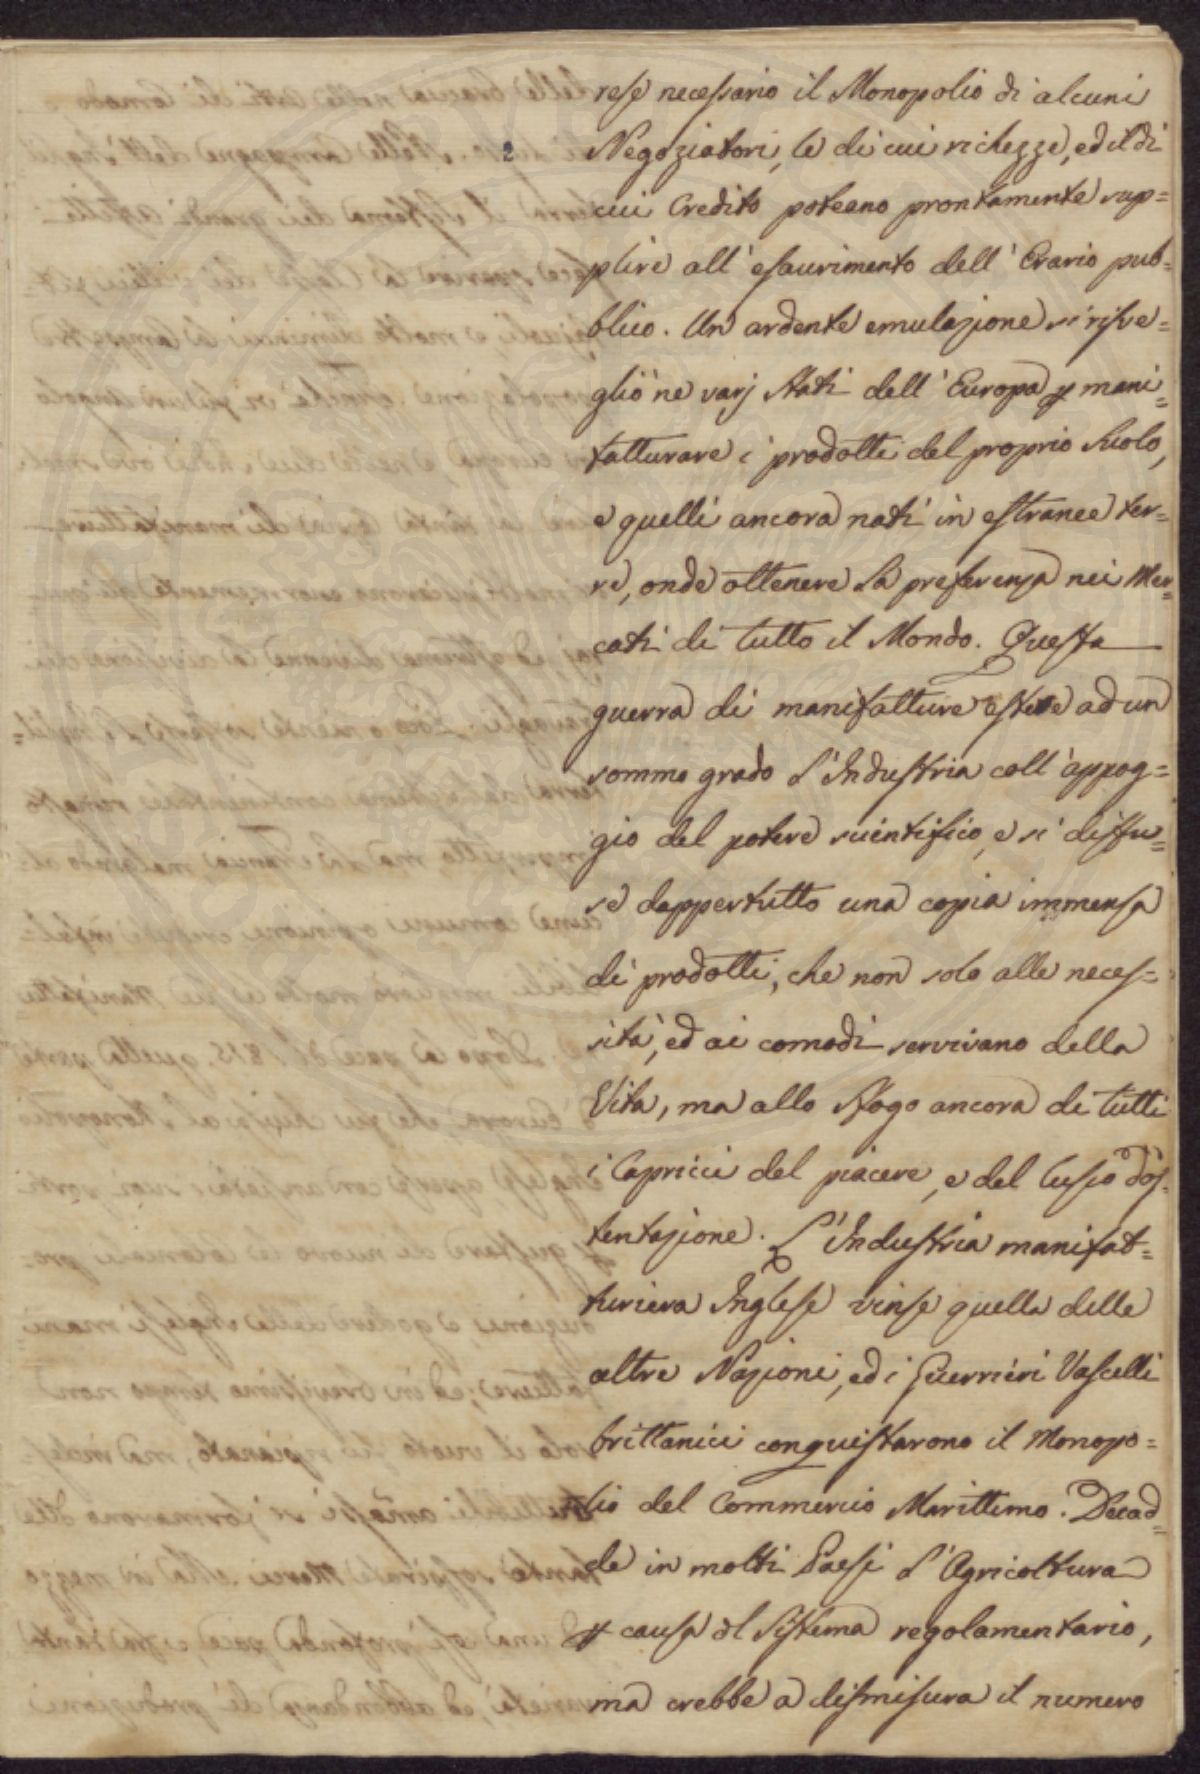 rese necessario il Monopolio di alcuni
2 Negoziatori, le di cui richezze, ed il di
cui Credito poteano prontamente sup=
plire all' esaurimento dell' Erario pub=
blico. Un ardente emulazione si risve=
gliò ne varj Stati dell' Europa p mani=
fatturare i prodotti del proprio Suolo,
e quelli ancora nati in estranee ter=
re, onde ottenere la preferenza nei Mer=
cati di tutto il Mondo. Questa
guerra di manifatture estese ad un
sommo grado l'Industria coll' appog=
gio del potere scientifico, e si diffu=
se dappertutto una copia immensa
di prodotti, che non solo alle neces=
sità, ed ai comodi servivano della
Vita, ma allo sfogo ancora di tutti
i Capricci del piacere, e del lusso d'os=
tentazione. L'Industria manifat=
turiera Inglese vinse quella delle
altre Nazioni, ed i Guerrieri Vascelli
brittanici conquistarono il Monopo=
lio del Commercio Marittimo. Decad=
de in molti Paesi l'Agricoltura
p causa dl Sistema regolamentario,
ma crebbe a dismisura il numero